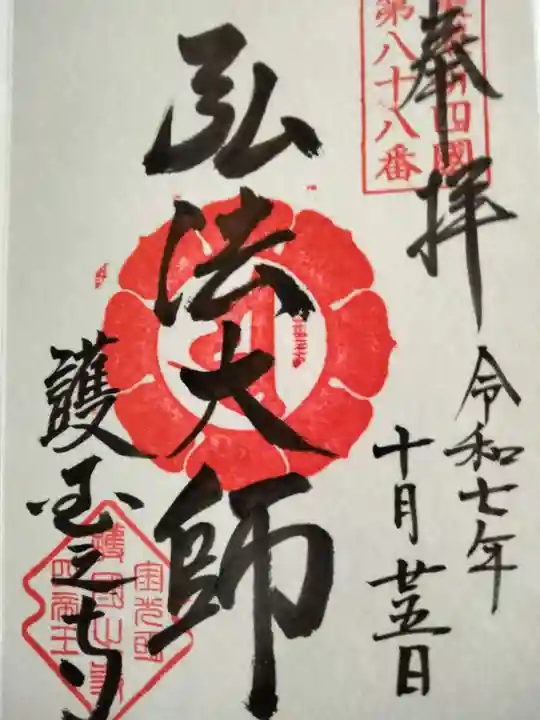 奉拝
四國
第八十八番
令和七年
十月廿五日
弘法大師
護国之寺